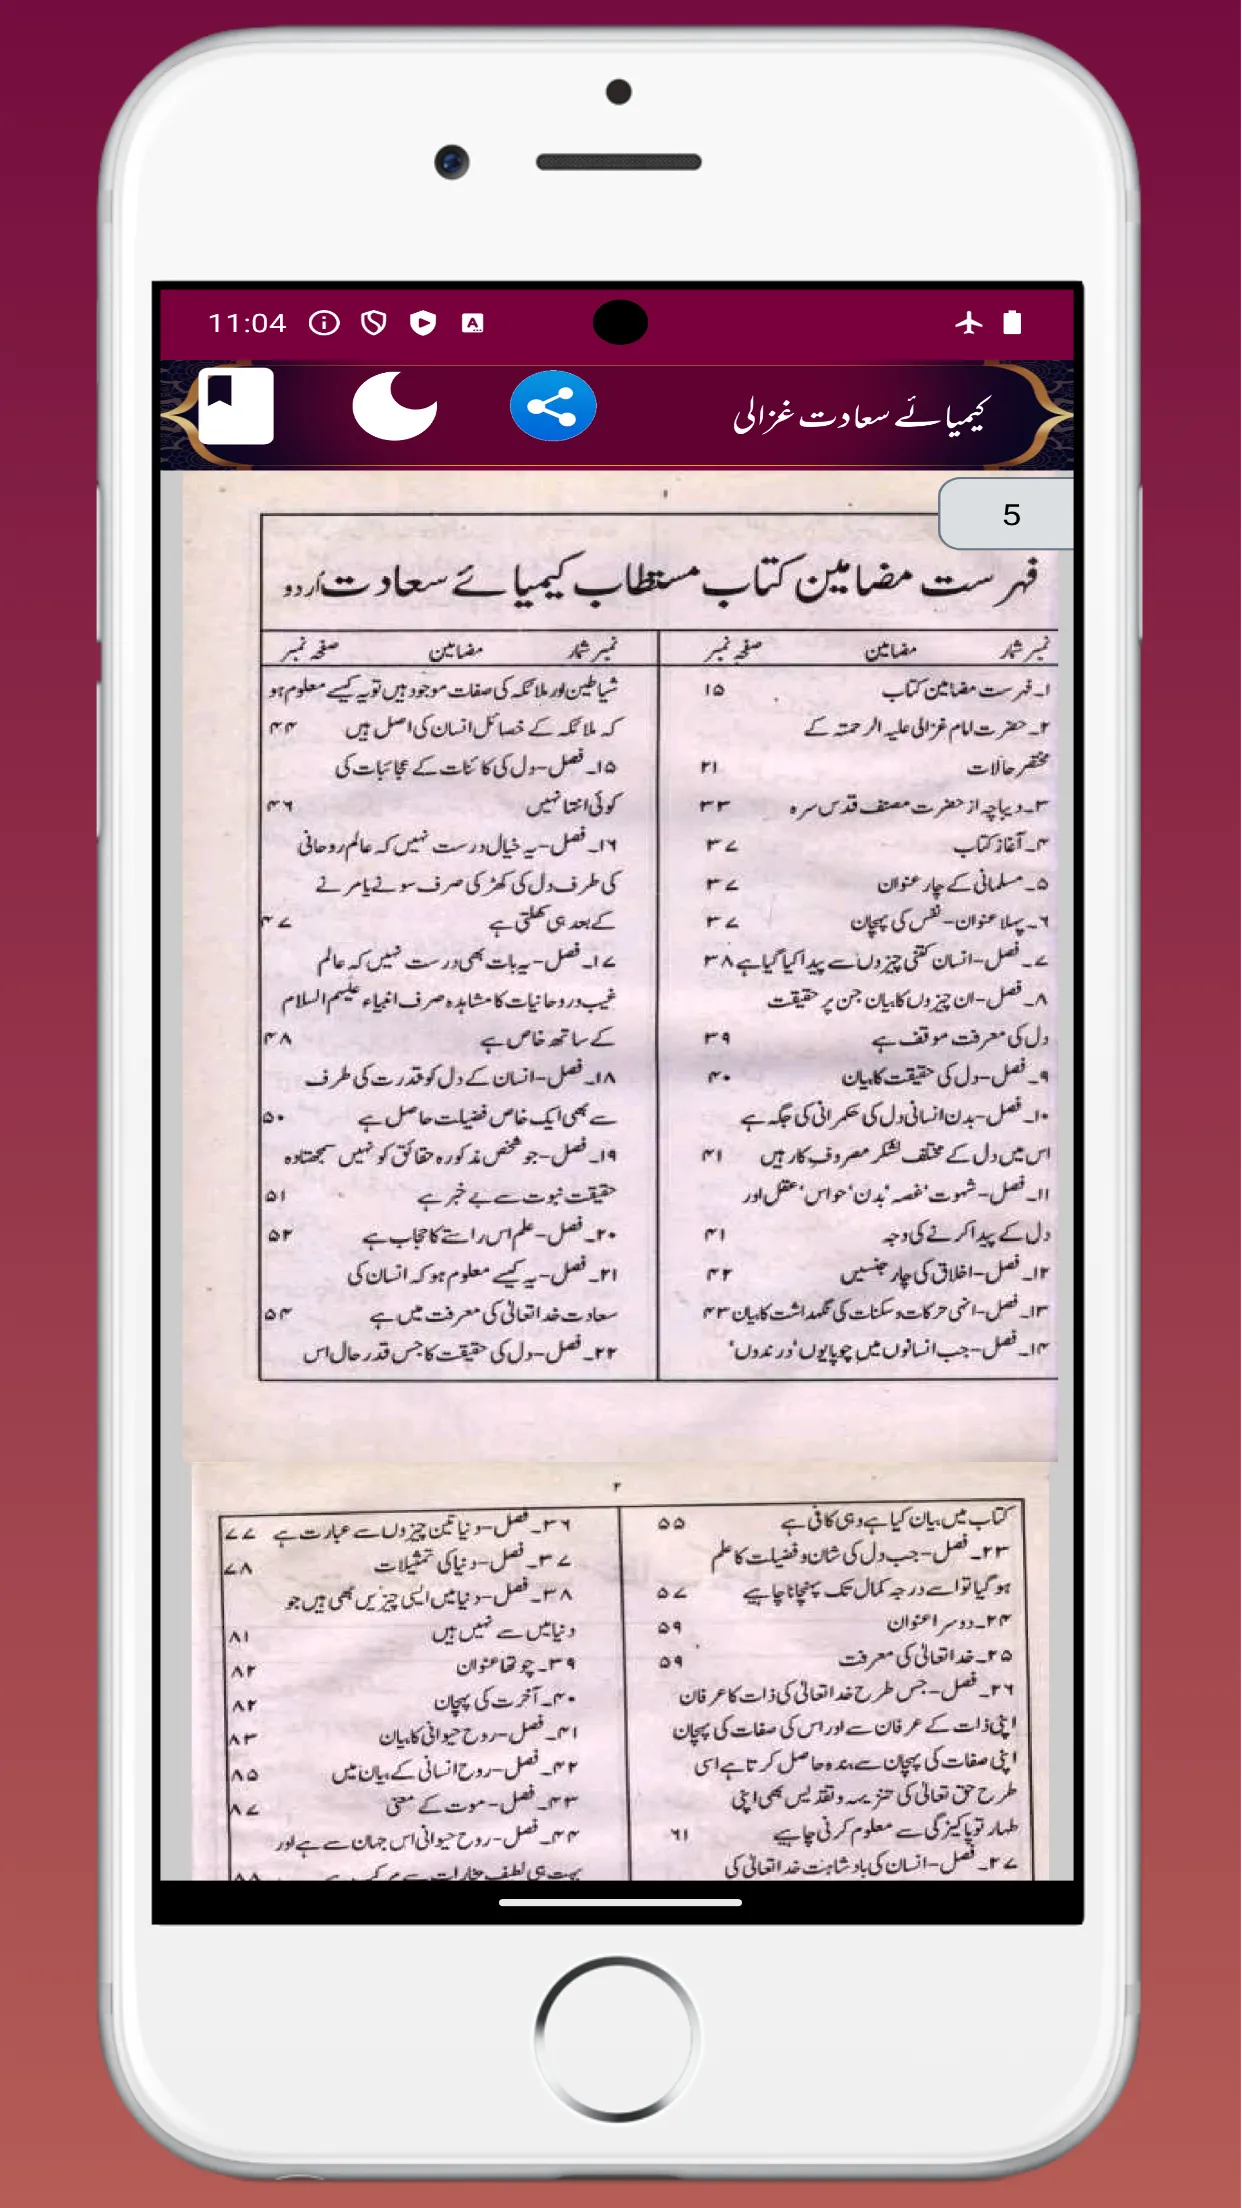 11:04
کیمیائے سعادت غزالی
5
۱
فہرست مضامین کتاب مستطاب کیمیائے سعادت اُردو
نمبر شمار مضامین صفحہ نمبر
۱۔ فہرست مضامین کتاب ۱۵
۲۔ حضرت امام غزالی علیہ الرحمتہ کے
مختصر حالات ۲۱
۳۔ دیباچہ از حضرت مصنف قدس سرہ ۳۳
۴۔ آغاز کتاب ۳۷
۵۔ مسلمانی کے چار عنوان ۳۷
۶۔ پہلا عنوان - نفس کی پہچان ۳۷
۷۔ فصل - انسان کتنی چیزوں سے پیدا کیا گیا ہے ۳۸
۸۔ فصل - ان چیزوں کا بیان جن پر حقیقت
دل کی معرفت موقف ہے ۳۹
۹۔ فصل - دل کی حقیقت کا بیان ۴۰
۱۰۔ فصل - بدن انسانی دل کی حکمرانی کی جگہ ہے
اس میں دل کے مختلف لشکر مصروفِ کار ہیں ۴۱
۱۱۔ فصل - شہوت ‘ غصہ ‘ بدن ‘ حواس ‘ عقل اور
دل کے پیدا کرنے کی وجہ ۴۱
۱۲۔ فصل - اخلاق کی چار جنسیں ۴۲
۱۳۔ فصل - انہی حرکات و سکنات کی نگہداشت کا بیان ۴۳
۱۴۔ فصل - جب انسانوں میں چوپایوں ‘ درندوں ‘
نمبر شمار مضامین صفحہ نمبر
شیاطین اور ملائکہ کی صفات موجود ہیں تو یہ کیسے معلوم ہو
کہ ملائکہ کے خصائل انسان کی اصل ہیں ۴۴
۱۵۔ فصل - دل کی کائنات کے عجائبات کی
کوئی انتہا نہیں ۴۶
۱۶۔ فصل - یہ خیال درست نہیں کہ عالم روحانی
کی طرف دل کی کھڑکی صرف سونے یا مرنے
کے بعد ہی کھلتی ہے ۴۷
۱۷۔ فصل - یہ بات بھی درست نہیں کہ عالم
غیب و روحانیات کا مشاہدہ صرف انبیاء علیہم السلام
کے ساتھ خاص ہے ۴۸
۱۸۔ فصل - انسان کے دل کو قدرت کی طرف
سے بھی ایک خاص فضیلت حاصل ہے ۵۰
۱۹۔ فصل - جو شخص مذکورہ حقائق کو نہیں سمجھتا وہ
حقیقت نبوت سے بے خبر ہے ۵۱
۲۰۔ فصل - علم اس راستے کا حجاب ہے ۵۲
۲۱۔ فصل - یہ کیسے معلوم ہو کہ انسان کی
سعادت خدا تعالیٰ کی معرفت میں ہے ۵۴
۲۲۔ فصل - دل کی حقیقت کا جس قدر حال اس
۲
کتاب میں بیان کیا ہے وہی کافی ہے ۵۵
۲۳۔ فصل - جب دل کی شان و فضیلت کا علم
ہو گیا تو اسے درجہ کمال تک پہنچانا چاہیے ۵۷
۲۴۔ دوسرا عنوان ۵۹
۲۵۔ خدا تعالیٰ کی معرفت ۵۹
۲۶۔ فصل - جس طرح خدا تعالیٰ کی ذات کا عرفان
اپنی ذات کے عرفان سے اور اس کی صفات کی پہچان
اپنی صفات کی پہچان سے بندہ حاصل کرتا ہے اسی
طرح حق تعالیٰ کی تنزیہہ و تقدیس بھی اپنی
طہارت و پاکیزگی سے معلوم کرنی چاہیے ۶۱
۲۷۔ فصل - انسان کی بادشاہت خدا تعالیٰ کی
۳۶۔ فصل - دنیا تین چیزوں سے عبارت ہے ۷۷
۳۷۔ فصل - دنیا کی تمثیلات ۷۸
۳۸۔ فصل - دنیا میں ایسی چیزیں بھی ہیں جو
دنیا میں سے نہیں ہیں ۸۱
۳۹۔ چوتھا عنوان ۸۲
۴۰۔ آخرت کی پہچان ۸۲
۴۱۔ فصل - روح حیوانی کا بیان ۸۳
۴۲۔ فصل - روح انسانی کے بیان میں ۸۵
۴۳۔ فصل - موت کے معنی ۸۷
۴۴۔ فصل - روح حیوانی اس جہان سے ہے اور
بہت ہی لطیف بخارات سے مرکب ہے ۸۸